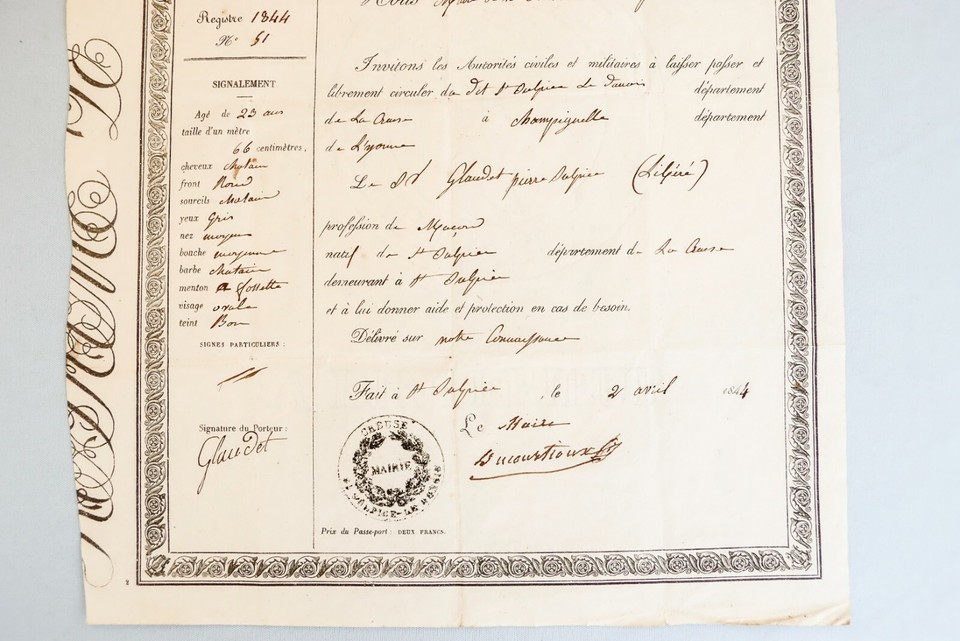 Registre 1844
N° 51
SIGNALEMENT
Agé de 23 ans
taille d'un mètre
66 centimètres,
cheveux chatain
front Rond
sourcils chatain
yeux Gris
nez moyen
bouche moyenne
barbe chatain
menton a fossette
visage ovale
teint Bon
SIGNES PARTICULIERS :
Signature du Porteur :
Glaudet
Nous
Invitons les Autorités civiles et militaires à laisser passer et
librement circuler du dit St Sulpice Le département
de La Creuse à Champignelle département
de L'yonne
Le Sr Glaudet pierre Sulpice (Libéré)
profession de Macon
natif de St Sulpice département de La Creuse
demeurant à St Sulpice
et à lui donner aide et protection en cas de besoin.
Délivré sur notre Connaissance
Fait à St Sulpice, le 2 avril 1844
Le Maire
Ducourtioux
CREUSE
MAIRIE
ST SULPICE-LE
Prix du Passe-port : DEUX FRANCS.